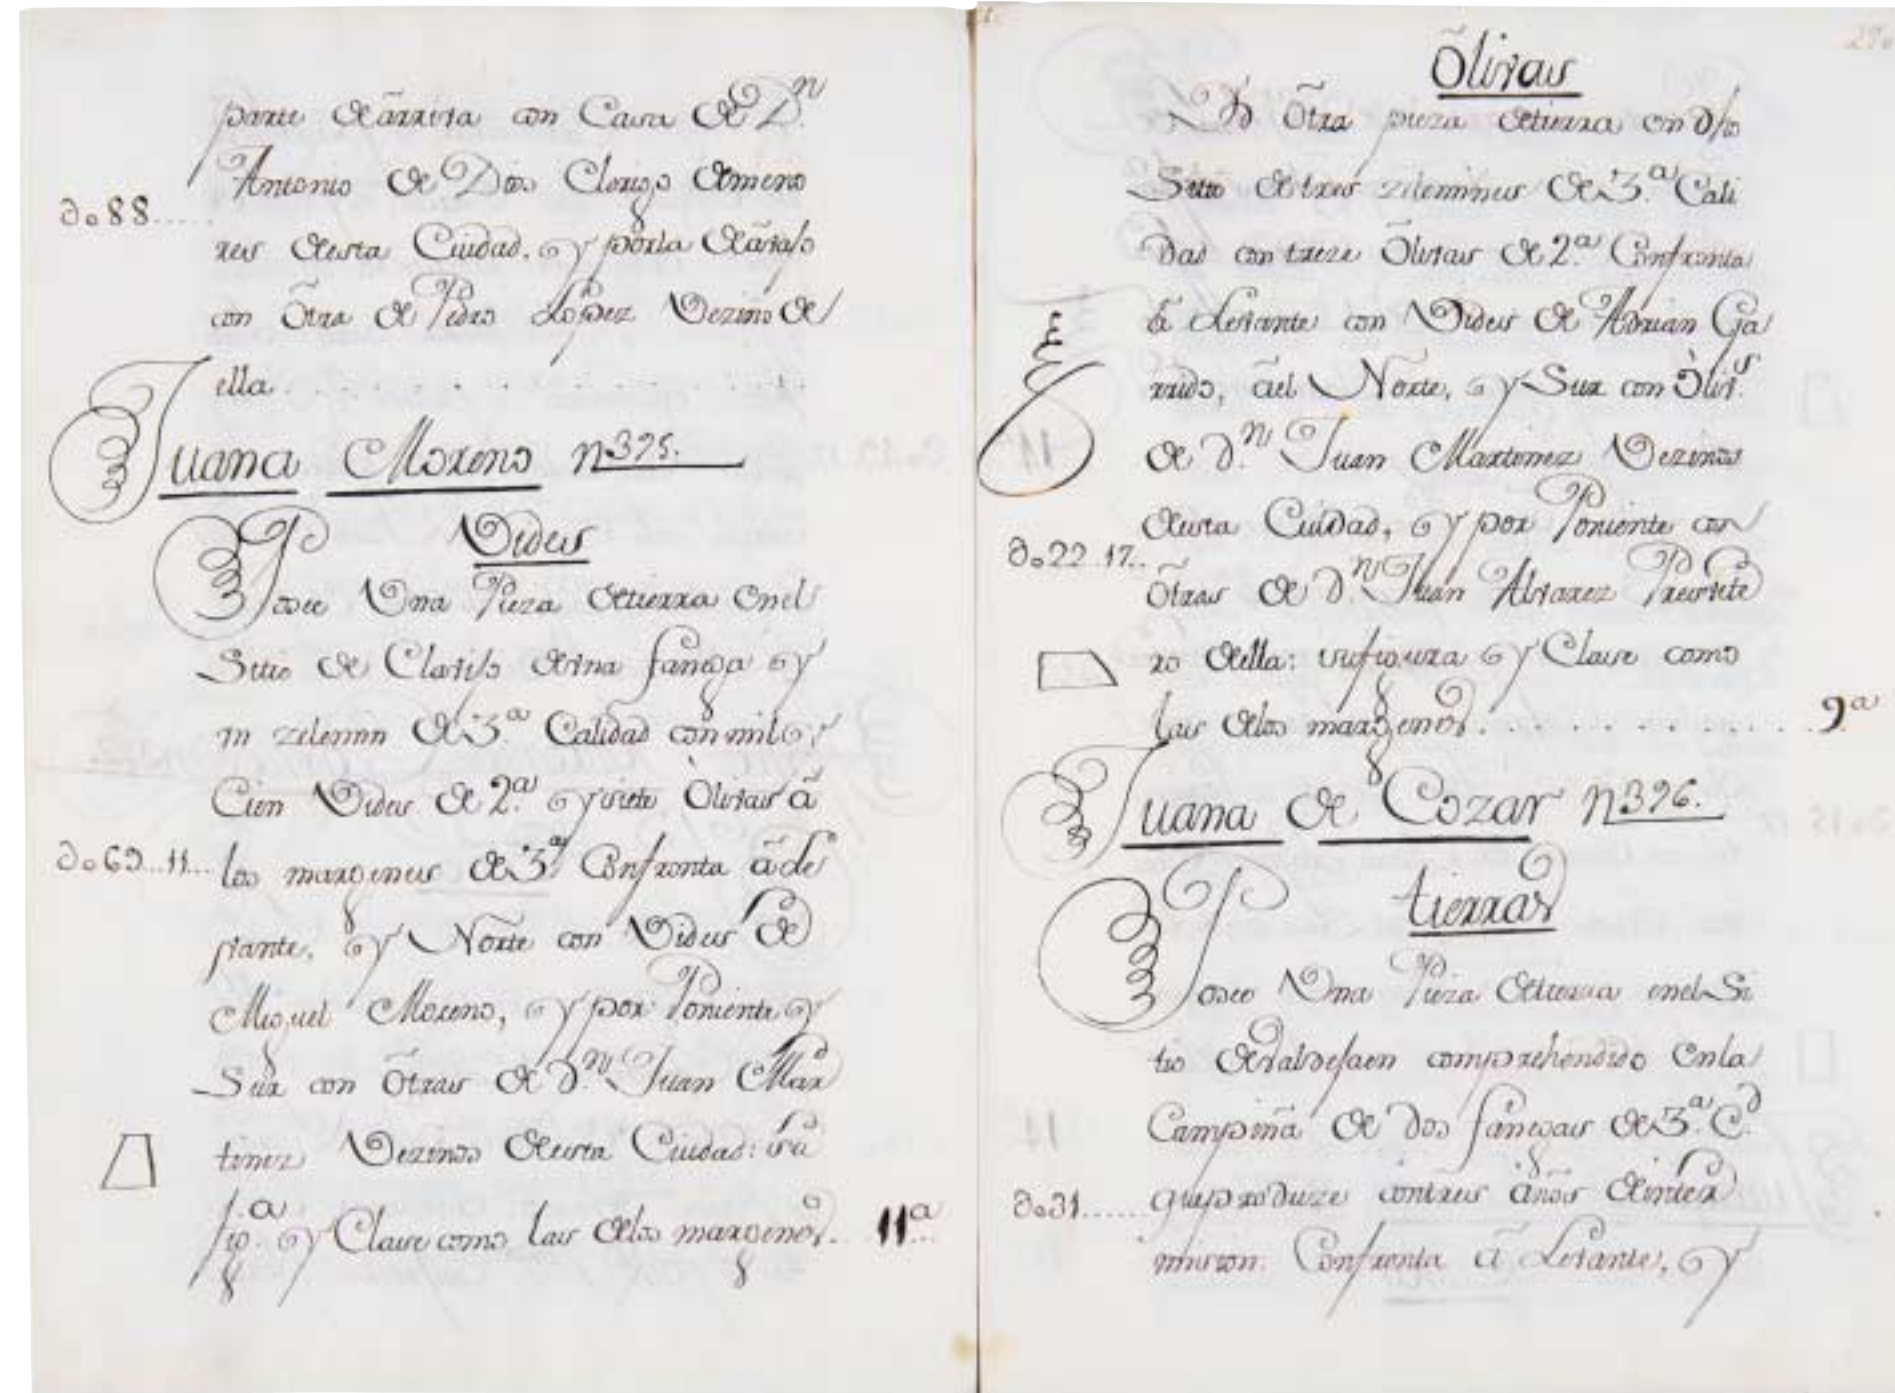 parte de ârriva con Casa de D.n
Antonio de Dios Clerigo de meno
do 88.....
res de esta Ciudad, y por la de âvajo
con ôtra de Pedro Lopez Vezino de
ella. . . . . . . . . . . . .
Juana Moreno n 395.
Vides
Posee Una Pieza de tierra en el
Sitio de Clavijo de vna fanega y
vn zelemin de 3.a Calidad con mil y
Cien Vides de 2.a y siete Ôlivas â
do 69..11... los margenes de 3.a Confronta â Le
vante, y Norte con Vides de
Miguel Moreno, y por Poniente y
Sur con ôtras de d.n Juan Mar
tinez Vezinos de esta Ciudad: su
fig.a y Clase como las de los margenes. 11a...
Ôlivas
Yd ôtra pieza de tierra en dho
Sitio de tres zelemines de 3.a Cali
dad con treze Ôlivas de 2.a Confronta
â Levante con Vides de Adrian Ga
rrido, âel Norte, y Sur con Òliv.s
de d.n Juan Martinez Vezinos
de esta Ciudad, y por Poniente con
do 22..17..
ôtras de d.n Juan Alvarez Presvite
ro de ella: su figura y Clase como
las de los margenes. . . . . . . . . . . . 9a
Juana de Cozar n 396.
tierras
Posee Una Pieza de tierra en el Si
tio de Valdejaen comprehendido en la
Campiña de dos fanegas de 3.a C.d
do 31...... que produze con tres años de inter
mision. Confronta â Levante, y